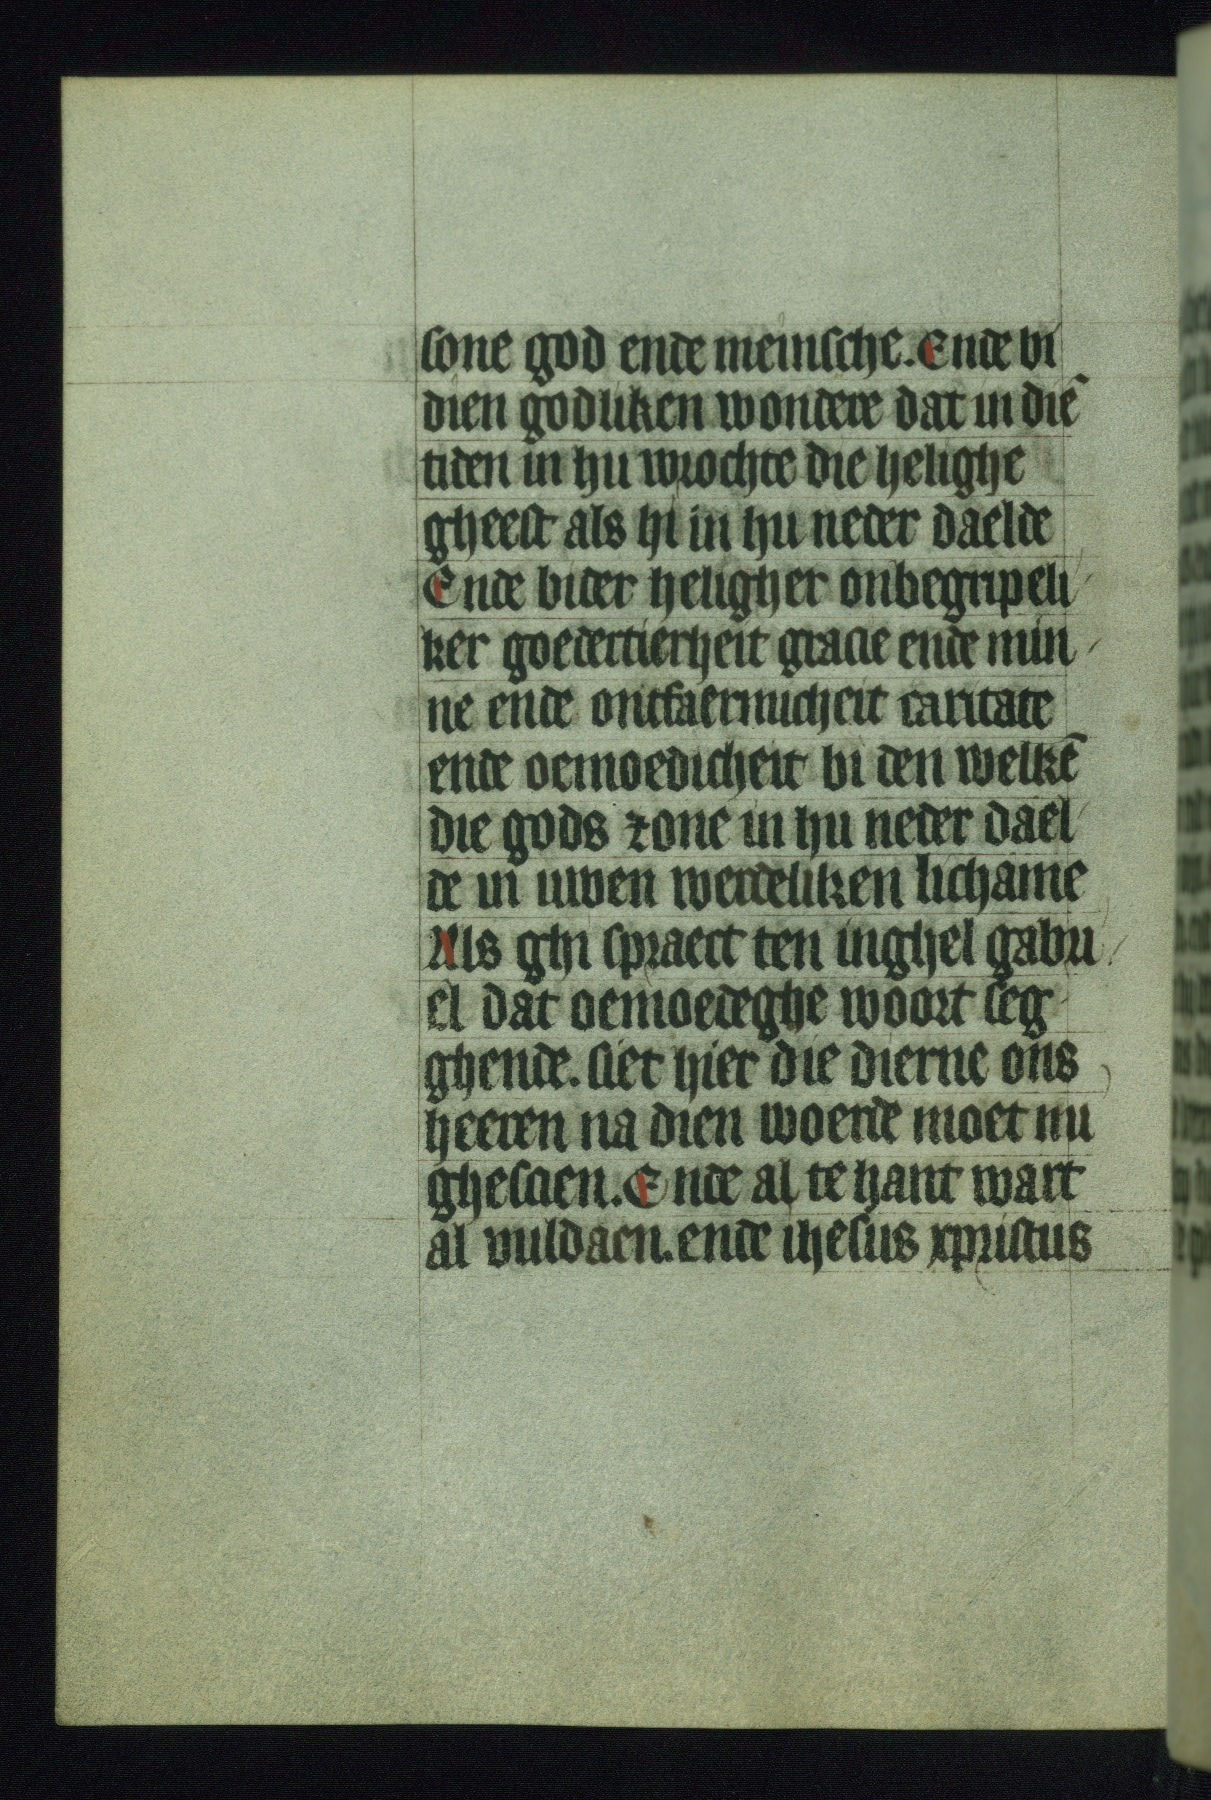 sone god ende meinsche. Ende bi
dien godliken wondere dat in diē
tiden in hu wrochte die helighe
gheest als hi in hu neder daelde
Ende bider heligher onbegripeli
ker goedertierheit gracie ende min
ne ende ontfaermicheit caritate
ende oemoedicheit bi den welkē
die gods zone in hu neder dael
de in uwen werdeliken lichame
Als ghi spraect ten inghel gabri
el dat oemoedeghe woort seg
ghende. siet hier die dierne ons
heeren na dien woerde moet mi
ghescien. Ende al te hant wart
al vuldaen. ende ihesus xpristus